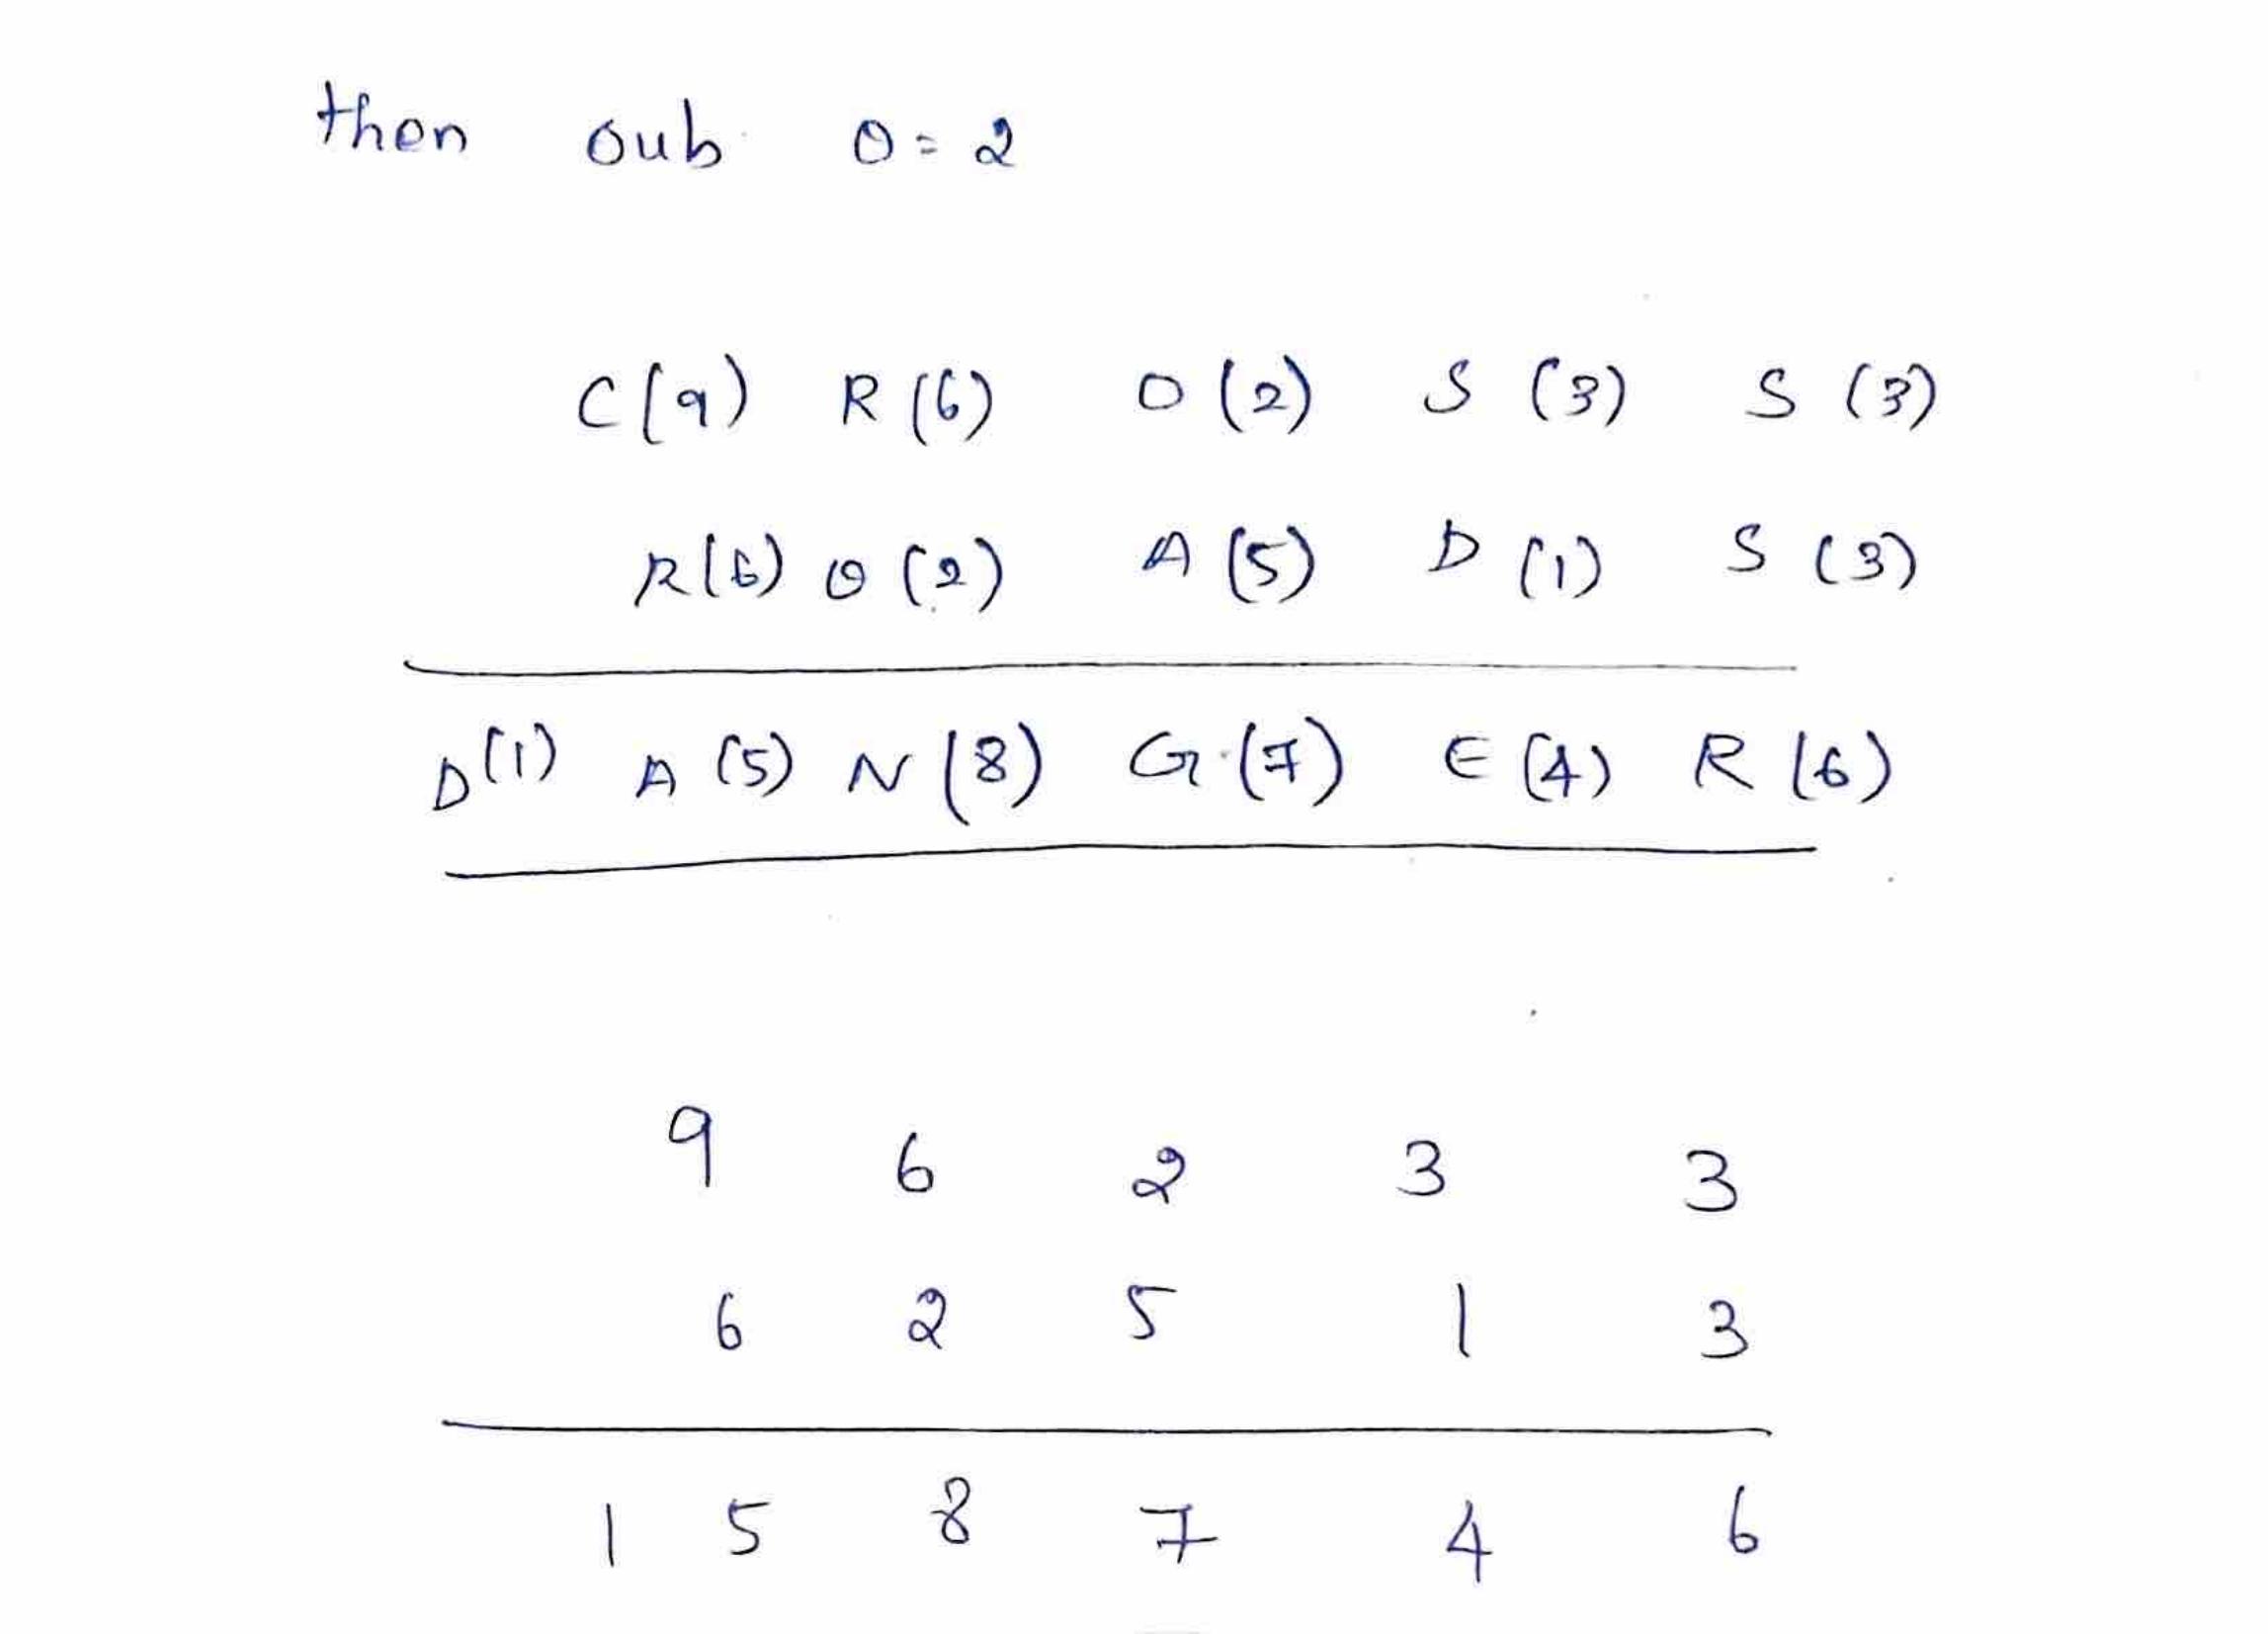 then sub O = 2
C(9) R(6) O(2) S(3) S(3)
R(6) O(2) A(5) D(1) S(3)
D(1) A(5) N(8) G(7) E(4) R(6)
9 6 2 3 3
6 2 5 1 3
1 5 8 7 4 6